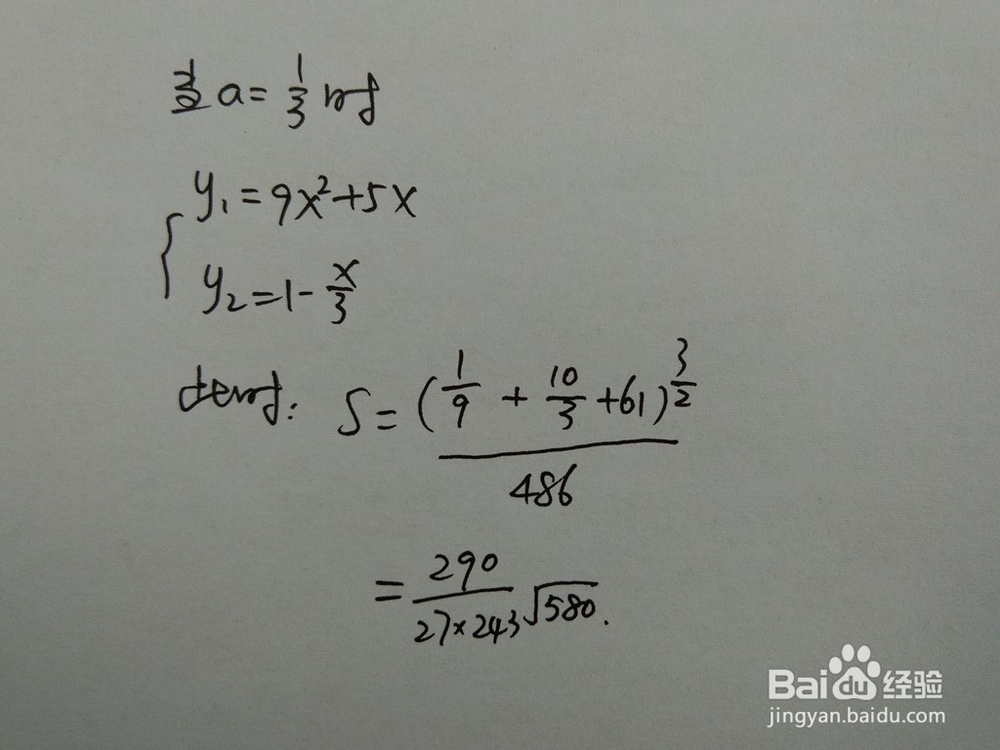 当 a = 1/3 时
y₁ = 9x² + 5x
y₂ = 1 - x/3
此时: S = (1/9 + 10/3 + 61)^(3/2) / 486
= 290/(27×243) √580.
Baidu 经验
jingyan.baidu.com